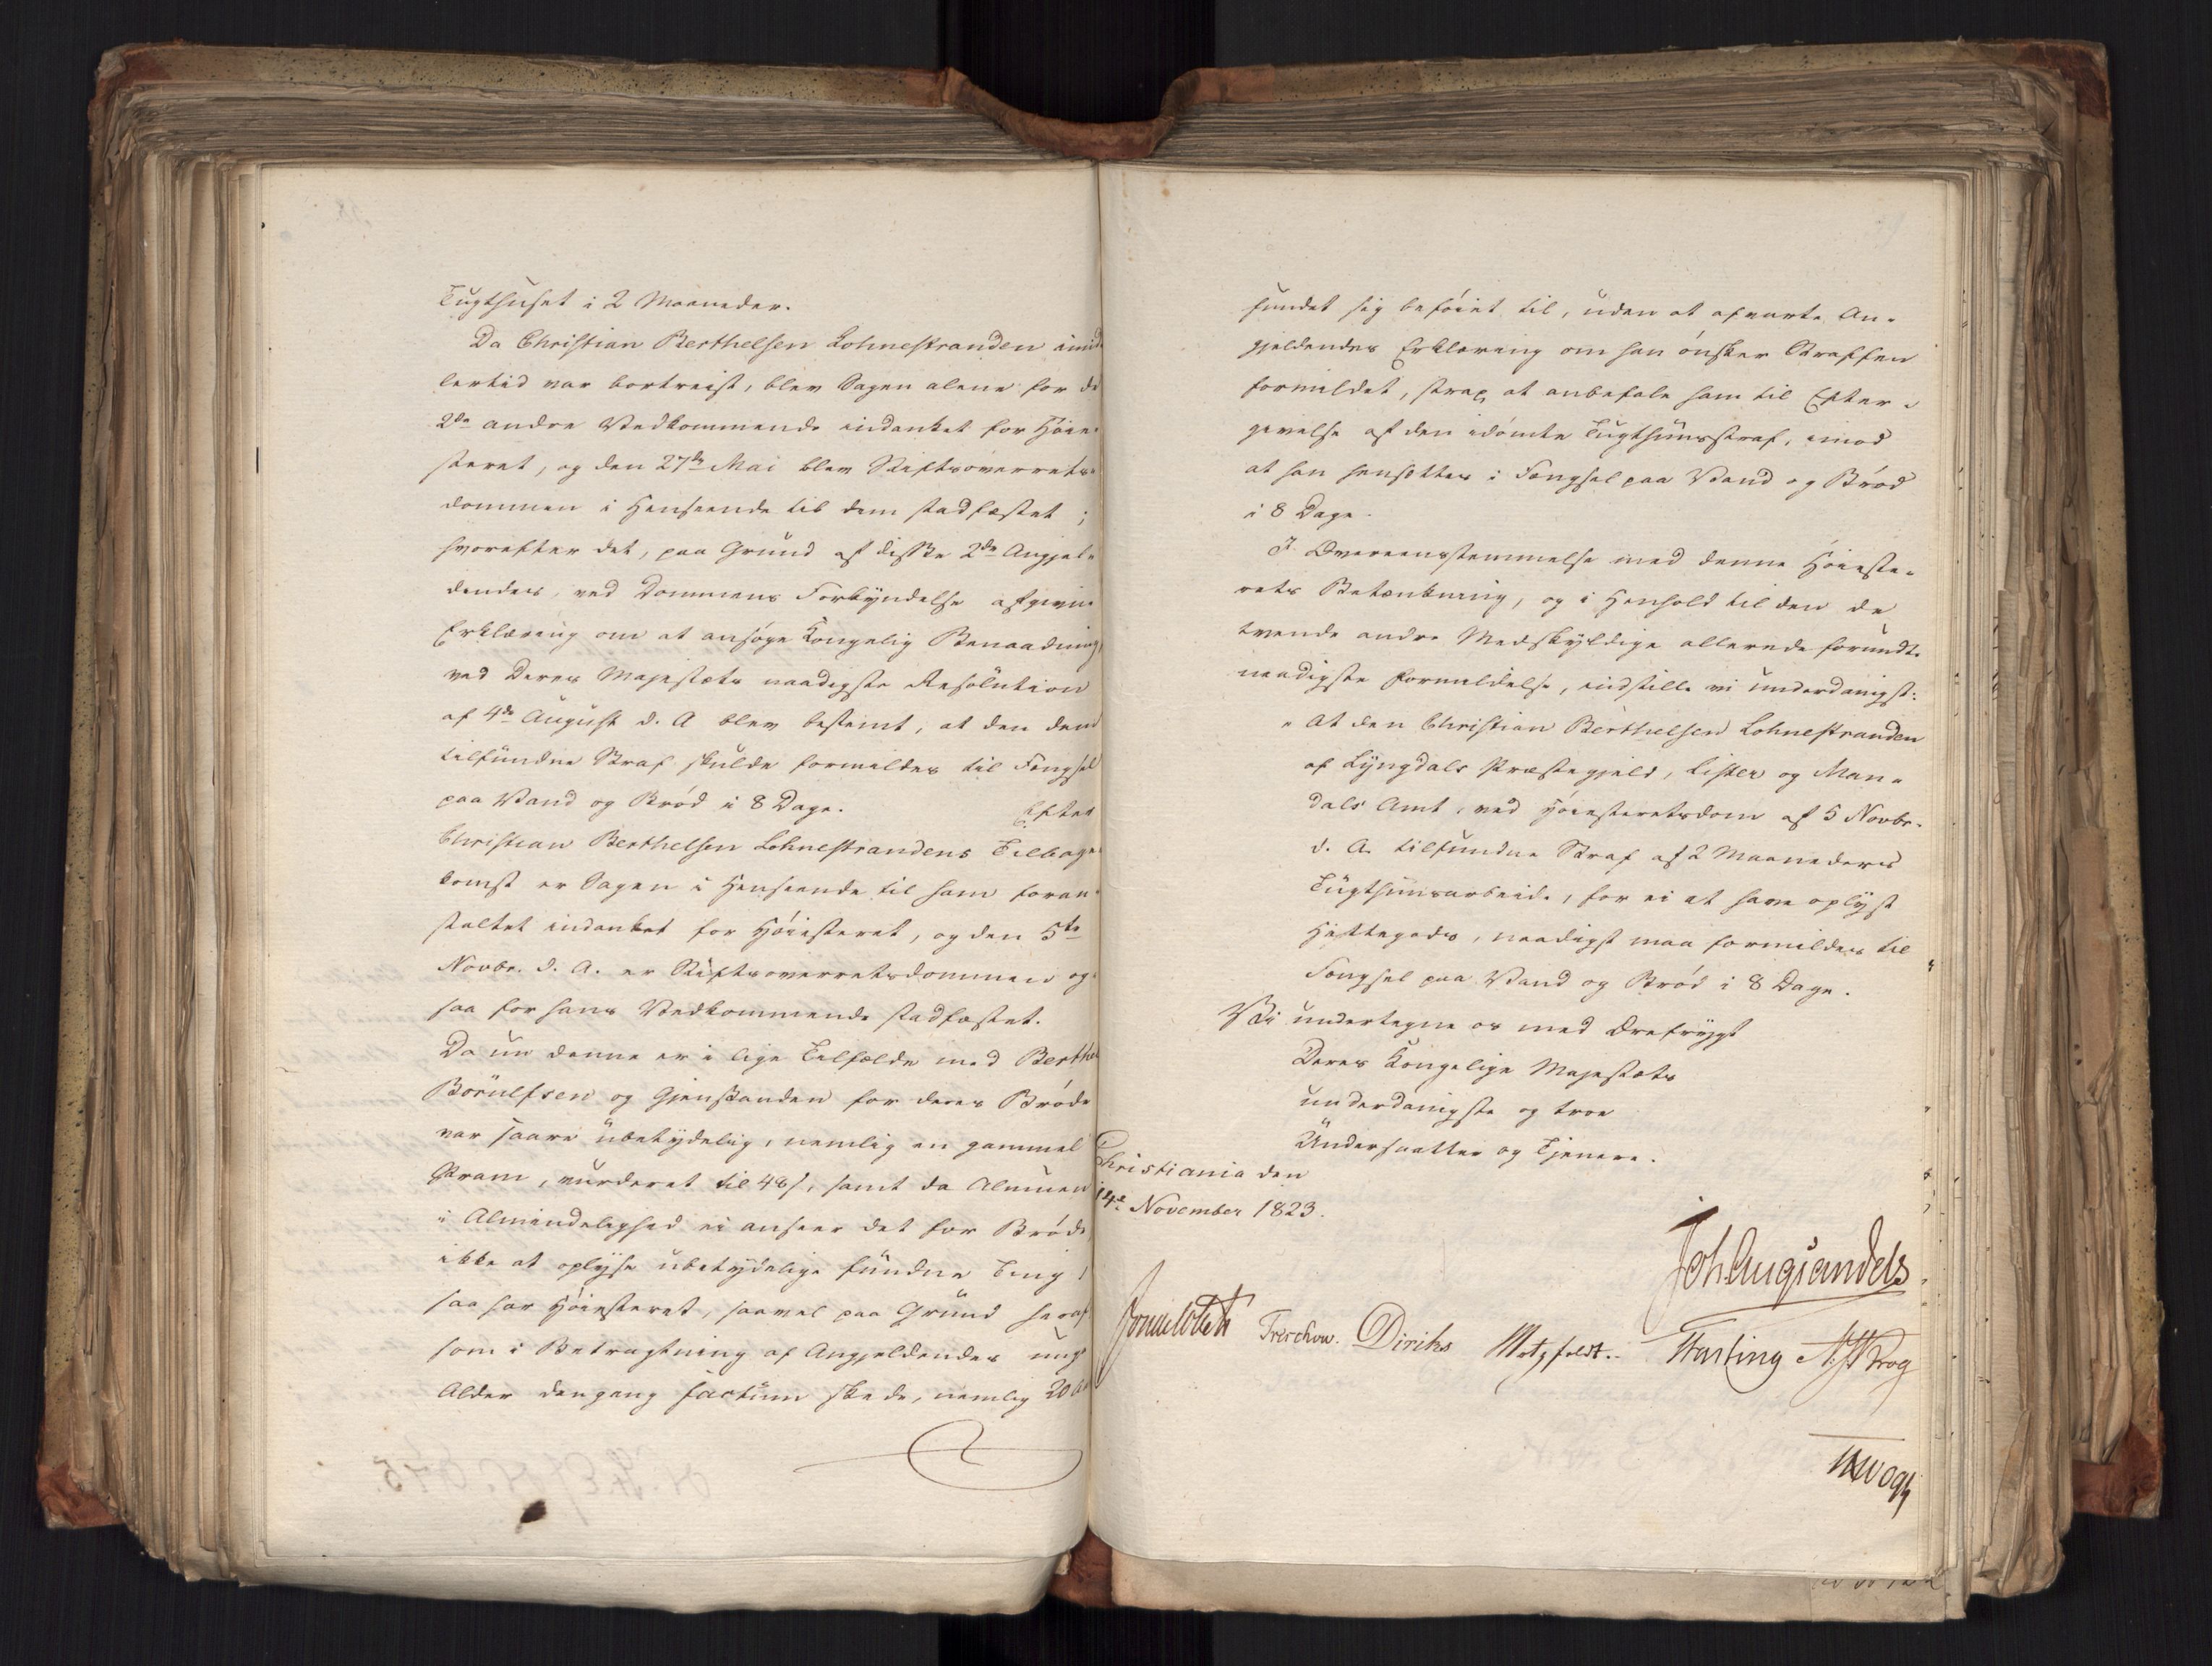 Tugthuset i 2 Maaneder.
Da Christian Berthelsen Lohnestranden imid
lertid var bortreist, blev Sagen alene for de
2de andre Vedkommende indanket for Høie-
steret, og den 27de Mai blev Stiftsoverrets-
dommen i Henseende til dem stadfæstet;
hvorefter det, paa Grund af disse 2de Angjel-
dendes, ved Dommens Forkyndelse afgivne
Erklæring om at ansøge Kongelig Benaadning,
ved Deres Majestæts naadigste Resolution
af 4de August d. A blev bestemt, at den dem
tilfundne Straf skulde formildes til Fængsel
paa Vand og Brød i 8 Dage. Efter
Christian Berthelsen Lohnestrandens Tilbage-
komst er Sagen i Henseende til ham foran-
staltet indanket for Høiesteret, og den 5te
Novbr. d. A. er Stiftsoverretsdommen og-
saa for hans Vedkommende stadfæstet.
Da nu denne er i lige Tilfælde med Berthel
Börülfsen og Gjenstanden for deres Brøde
var saare übetydelig, nemlig en gammel
Pram, vurderet til 48 s, samt da Almuen
i Almindelighed ei anseer det for Brøde,
ikke at oplyse ubetydelige fundne Ting,
saa har Høiesteret, saavel paa Grund heraf
som i Betragtning af Angjeldendes unge
Alder dengang factum skede, nemlig 20 Aar
fundet sig beføiet til, uden at afvarte An-
gjeldendes Erklæring om han ønsker Straffen
formildet, strax at anbefale ham til Efter-
givelse af den idømte Tugthuusstraf, imod
at han hensættes i Fængsel paa Vand og Brød
i 8 Dage.
I Overeensstemmelse med denne Høieste-
rets Betænkning, og i Henhold til den de
tvende andre Medskyldige allerede forundte
naadigste Formildelse, indstille vi underdanigst:
" At den Christian Berthelsen Lohnestranden
af Lyngdals Præstegjeld, Lister og Man-
dals Amt, ved Høiesteretsdom af 5 Novbr.
d. A. tilfundne Straf af 2 Maaneders
Tugthuusarbeide, for ei at have oplyst
Hittegods, naadigst maa formildes til
Fængsel paa Vand og Brød i 8 Dage.
Vi undertegne os med Ærefrygt
Deres Kongelige Majestæts
underdanigste og troe
Undersaatter og Tjenere.
Christiania den
14de November 1823.
Joh Aug Sandels
Sommerfeldt Treschow. Diriks Motzfeldt. Fasting N. J. Krog
Vogt